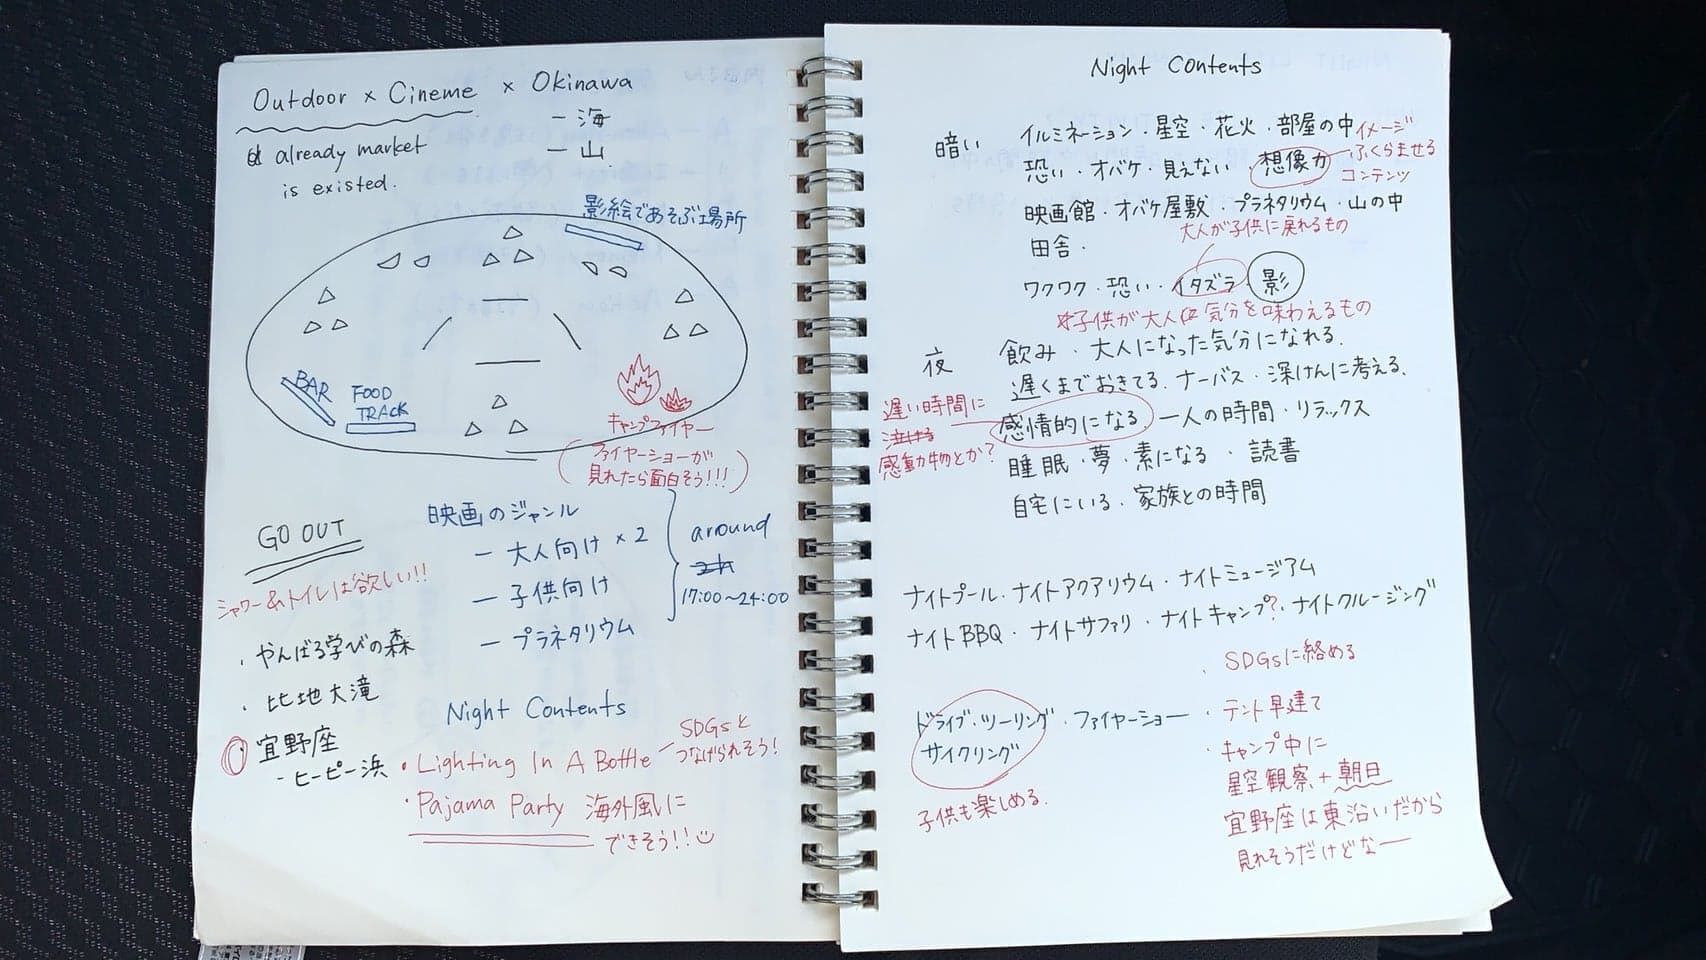 Outdoor × Cineme × Okinawa
- 海
- 山
already market
is existed.
影絵であそぶ場所
BAR
FOOD
TRACK
キャンプファイヤー
(ファイヤーショーが
見れたら面白そう!!!)
GO OUT
シャワー&トイレは欲しい!!
・やんばる学びの森
・比地大滝
宜野座
- ヒーピー浜
映画のジャンル
- 大人向け × 2
- 子供向け
- プラネタリウム
around
17:00~24:00
Night Contents
・Lighting In A Bottle
SDGsと
つなげられそう!
・Pajama Party 海外風に
できそう!!
Night Contents
暗い
イルミネーション・星空・花火・部屋の中
恐い・オバケ・見えない 想像力
イメージ
ふくらませる
コンテンツ
映画館・オバケ屋敷・プラネタリウム・山の中
田舎・
大人が子供に戻れるもの
ワクワク・恐い・イタズラ 影
子供が大人 気分を味わえるもの
夜
飲み・大人になった気分になれる.
遅くまでおきてる.ナーバス・深けんに考える、
感情的になる 一人の時間・リラックス
遅い時間に
泣ける
感動物とか?
睡眠・夢・素になる・読書
自宅にいる・家族との時間
ナイトプール・ナイトアクアリウム・ナイトミュージアム
ナイトBBQ・ナイトサファリ・ナイトキャンプ?・ナイトクルージング
ドライブ・ツーリング・ファイヤーショー
サイクリング
子供も楽しめる.
・SDGsに絡める
・テント早建て
・キャンプ中に
星空観察+朝日
宜野座は東沿いだから
見れそうだけどなー